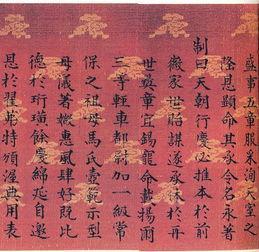 盛事五章服采洵大室之
隆恩顯命其永令名永著
制曰天朝行慶必推本於前
徽家世貽謀遂永休於再
世彝章宜錫寵命載揚爾
三等輕車都尉加一級常
保之祖母馬氏壼範示型
母儀著媺惠風肆好既比
德於珩璜餘慶綿延自邀
恩於翟茀特頒渥典用表